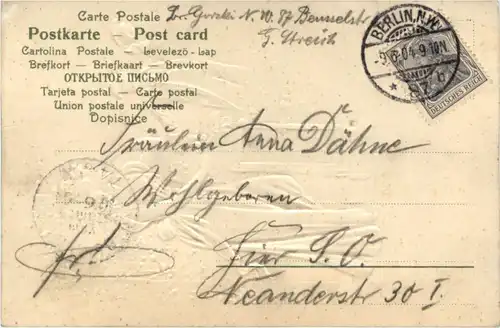 Carte Postale
Gorski N. W. 87 Beusselstr
Postkarte - Post card
G. Streich
Cartolina Postale - Levelező-Lap
Brefkort - Briefkaart - Brevkort
ОТКРЫТОЕ ПИСЬМО
Tarjeta postal - Carte postal
Union postale universelle
Dopisnice
BERLIN, N.W.
87 b
DEUTSCHES REICH
Fräulein Anna Dähne
Wohlgeboren
Hier S. O.
Neanderstr 30 I.